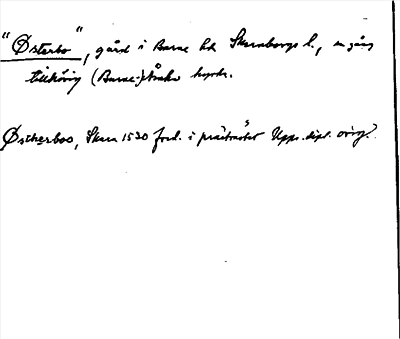 "Østerbo", gård i Barne hd Skaraborgs l., en gång
tillhörig (Barne-)Åsaka kyrka.
Østherboo, Skara 1530 förl. i prästrätt Upps. dipl. orig.